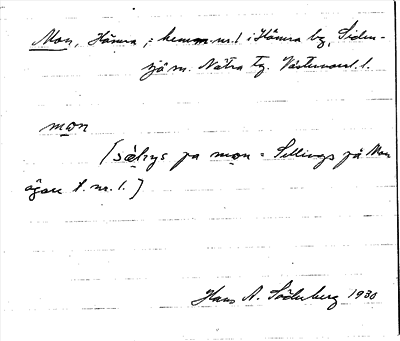 Mon, Hämra, : hemm. nr. 1 i Hämra by, Siden-
sjö sn. Nätra tg. Västernorrl. l.
mon
[sæ̀lıvs pa mon = Sellivegs på Mon
ägare t. nr. 1.]
Hans A. Söderberg 1930